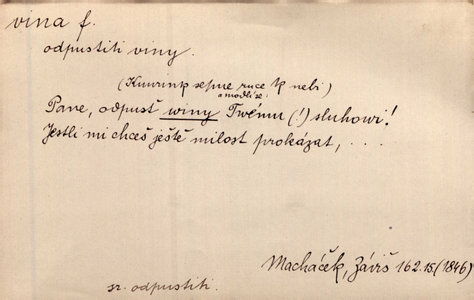 vina f.
odpustiti viny.
(Kunrink sepne ruce k nebi)
a modlí se:
Pane, odpusť winy Twému (!) sluhowi!
Jestli mi chceš ještě milost prokázat, . . .
Macháček, Záviš 162.15 (1846)
sr. odpustiti.